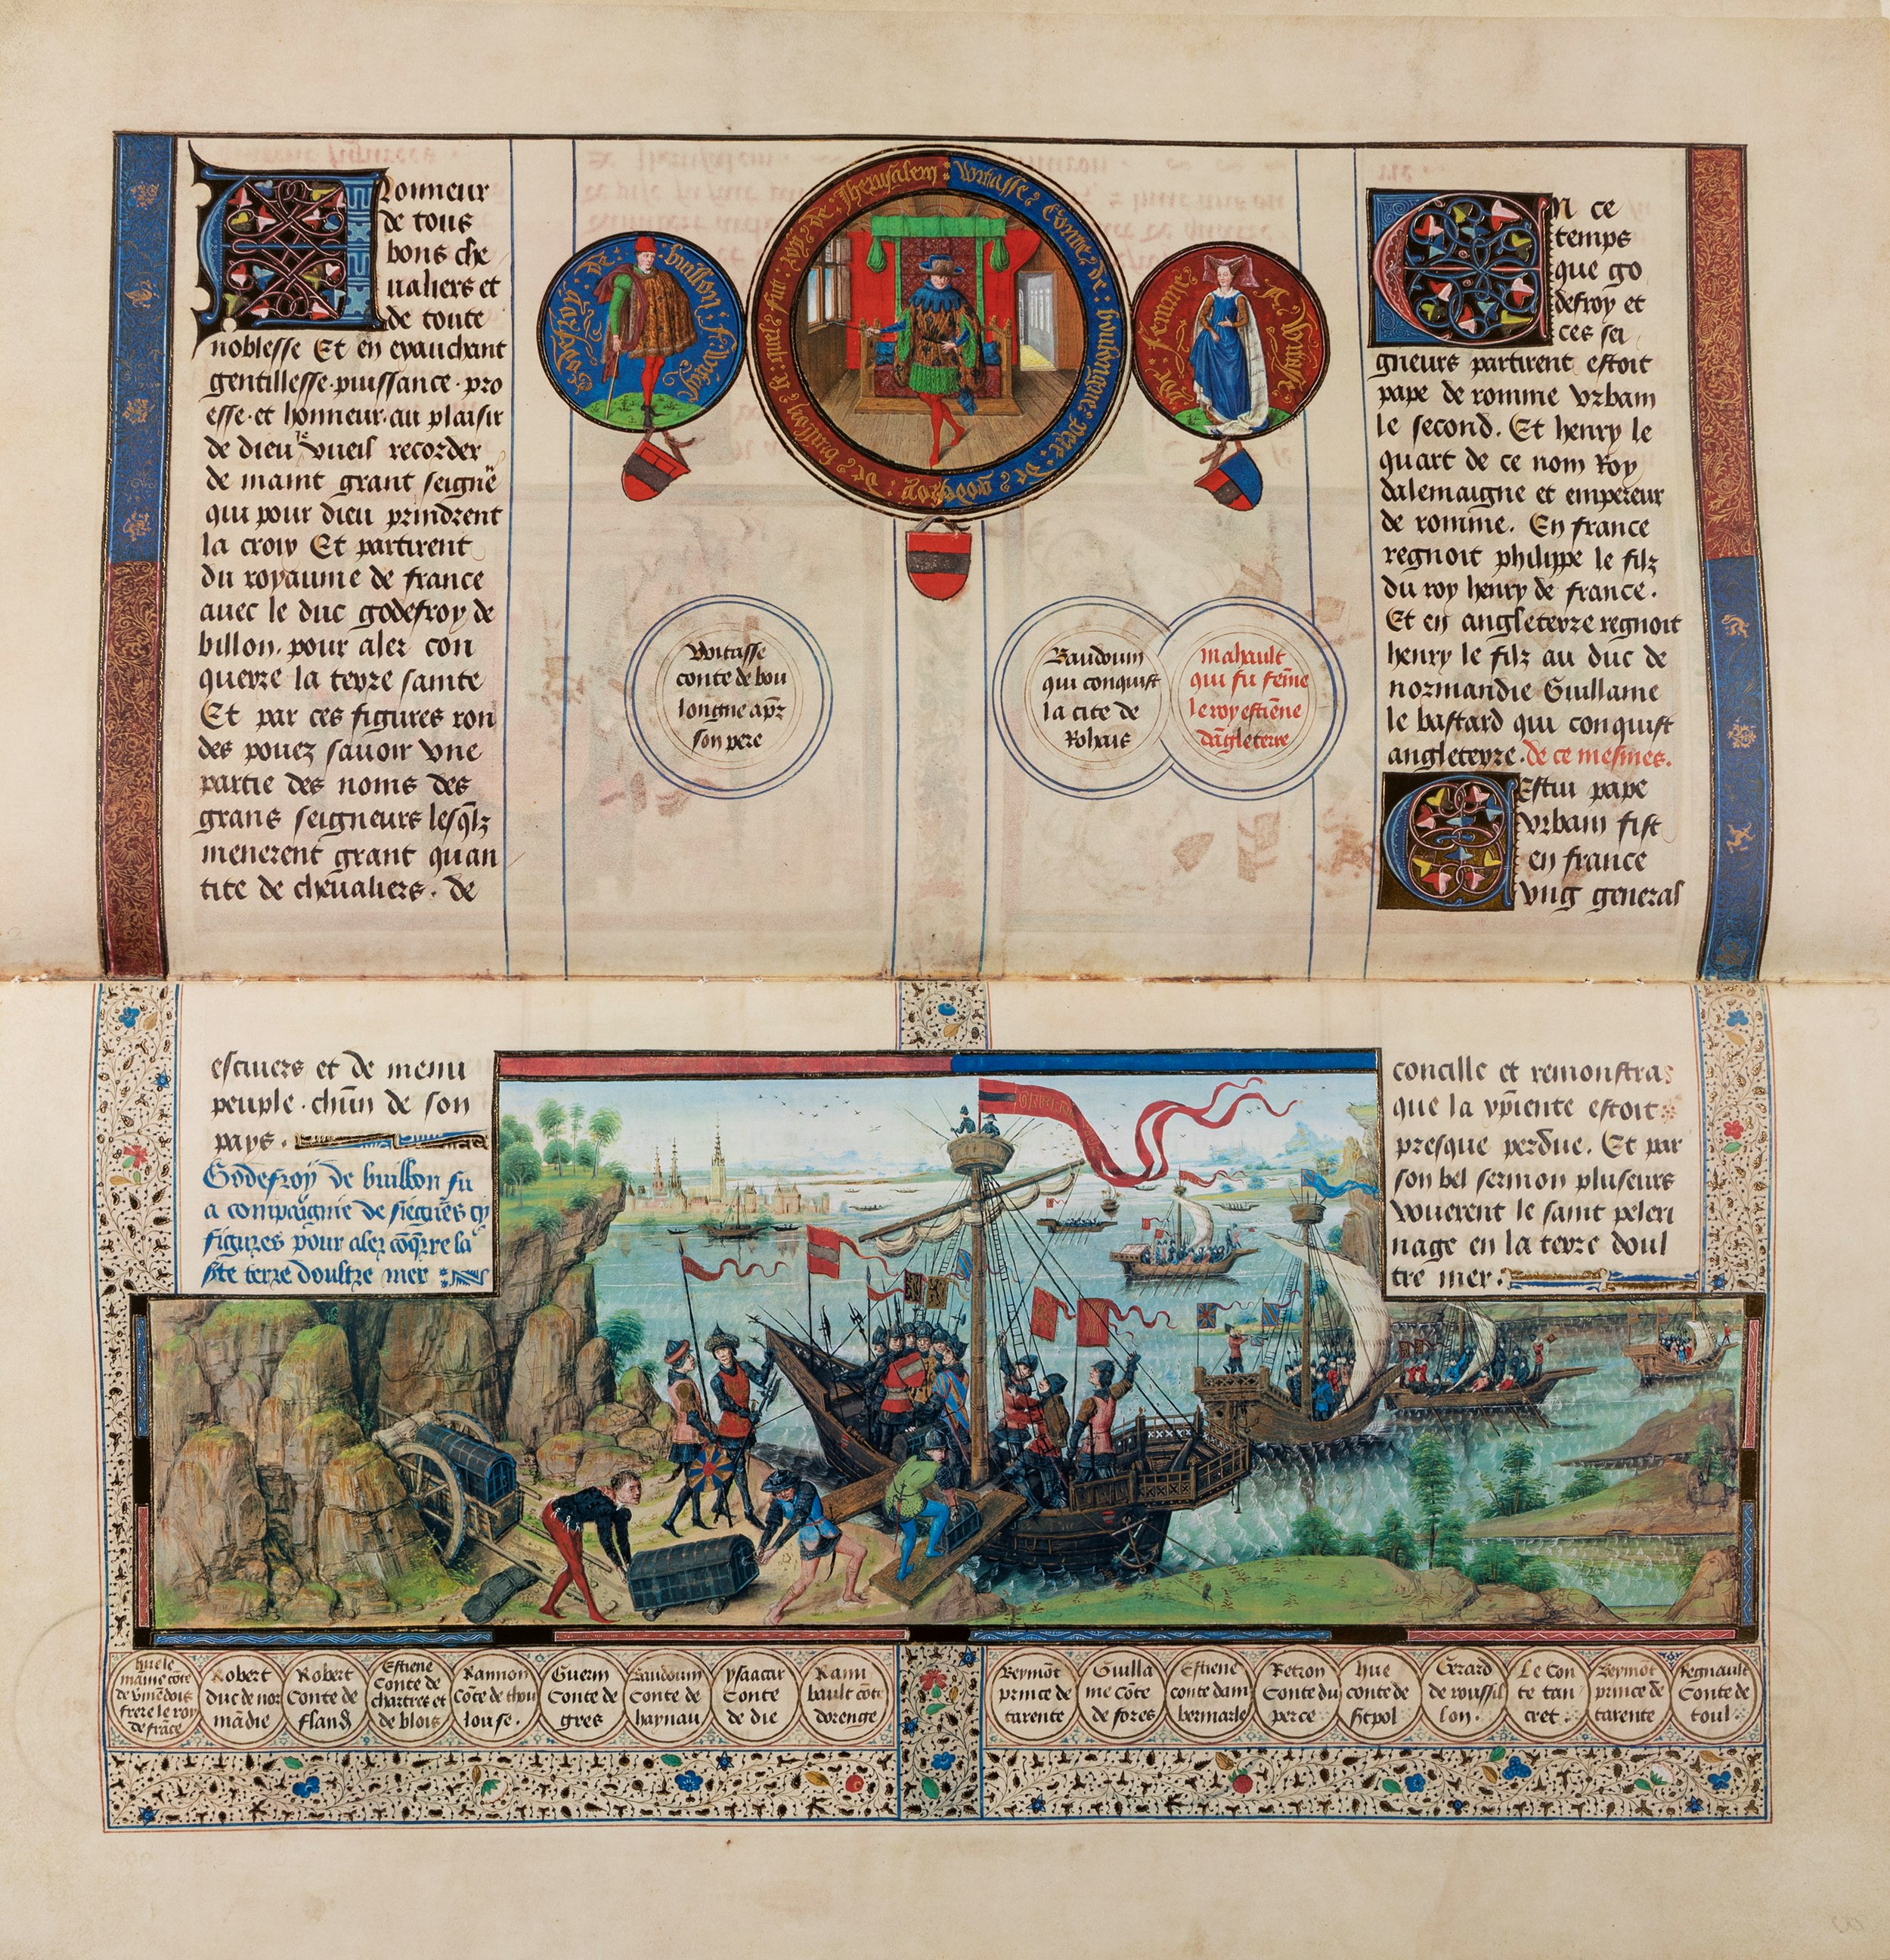 A lonneur
de tous
bons che
ualiers et
de toute
noblesse Et en exauchant
gentillesse·puissance·pro
esse·et honneur·au plaisir
de dieu Je vueil recorder
de maint grant seigne
qui pour dieu prindrent
la croix Et partirent
du royaume de france
auec le duc godefroy de
billon· pour aler con
querre la terre sainte
Et par ces figures ron
des pouez sauoir vne
partie des noms des
grans seigneurs lesqlz
menerent grant quan
tite de cheualiers · de
escuiers et de menu
peuple · chun de son
pays ·
Godefroy de buillon fu
a compaignie de siegnes cy
figures pour aler coqrre la
ste terre doultre mer
de : buillon :
: Witasse Conte : de : boulongne : Pere : de godefroy : de buillon le quel fut roy : de Jherusalem :
femme a Witasse
Witasse
conte de bou
longne apz
son pere
Baudouin
qui conquist
la cite de
Rohais
mahault
qui fu feme
le roy estiene
dagleterre
En ce
temps
que go
defroy et
ces sei
gneurs partirent estoit
pape de romme vrbain
le second. Et henry le
quart de ce nom Roy
dalemaigne et empereur
de romme. En france
regnoit philippe le filz
du roy henry de france.
Et en angleterre regnoit
henry le filz au duc de
normandie Guillame
le bastard qui conquist
angleterre. de ce mesmes.
Cestui pape
vrbain fist
en france
vng general
concille et remonstra
que la xpiente estoit
presque perdue. Et par
son bel sermon pluseurs
vouerent le saint peleri
nage en la terre doul
tre mer.
hue le
maine cote
de vmedois
frere le roy
de frace
Robert
duc de nor
madie
Robert
Conte de
fland
Estiene
Conte de
chartres et
de blois
Raimon
Cote de thou
louse.
Guerin
Conte de
gres
Baudouin
Conte de
haynau
ysaacar
Conte
de die
Raim
bault cote
dorenge
Beymot
prince de
tarente
Guilla
me cote
de fores
Estiene
conte dam
bermarle
Retron
Conte du
perce
hue
conte de
st pol
Gerard
de roussil
lon.
Le Con
te tan
cret.
Beymot
prince de
tarente
Regnault
Conte de
toul.